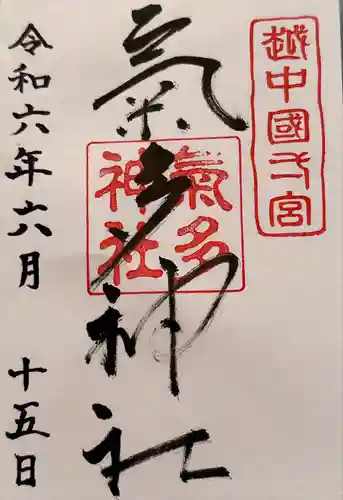 越中國一宮
氣多神社
氣多
神社
令和六年六月十五日